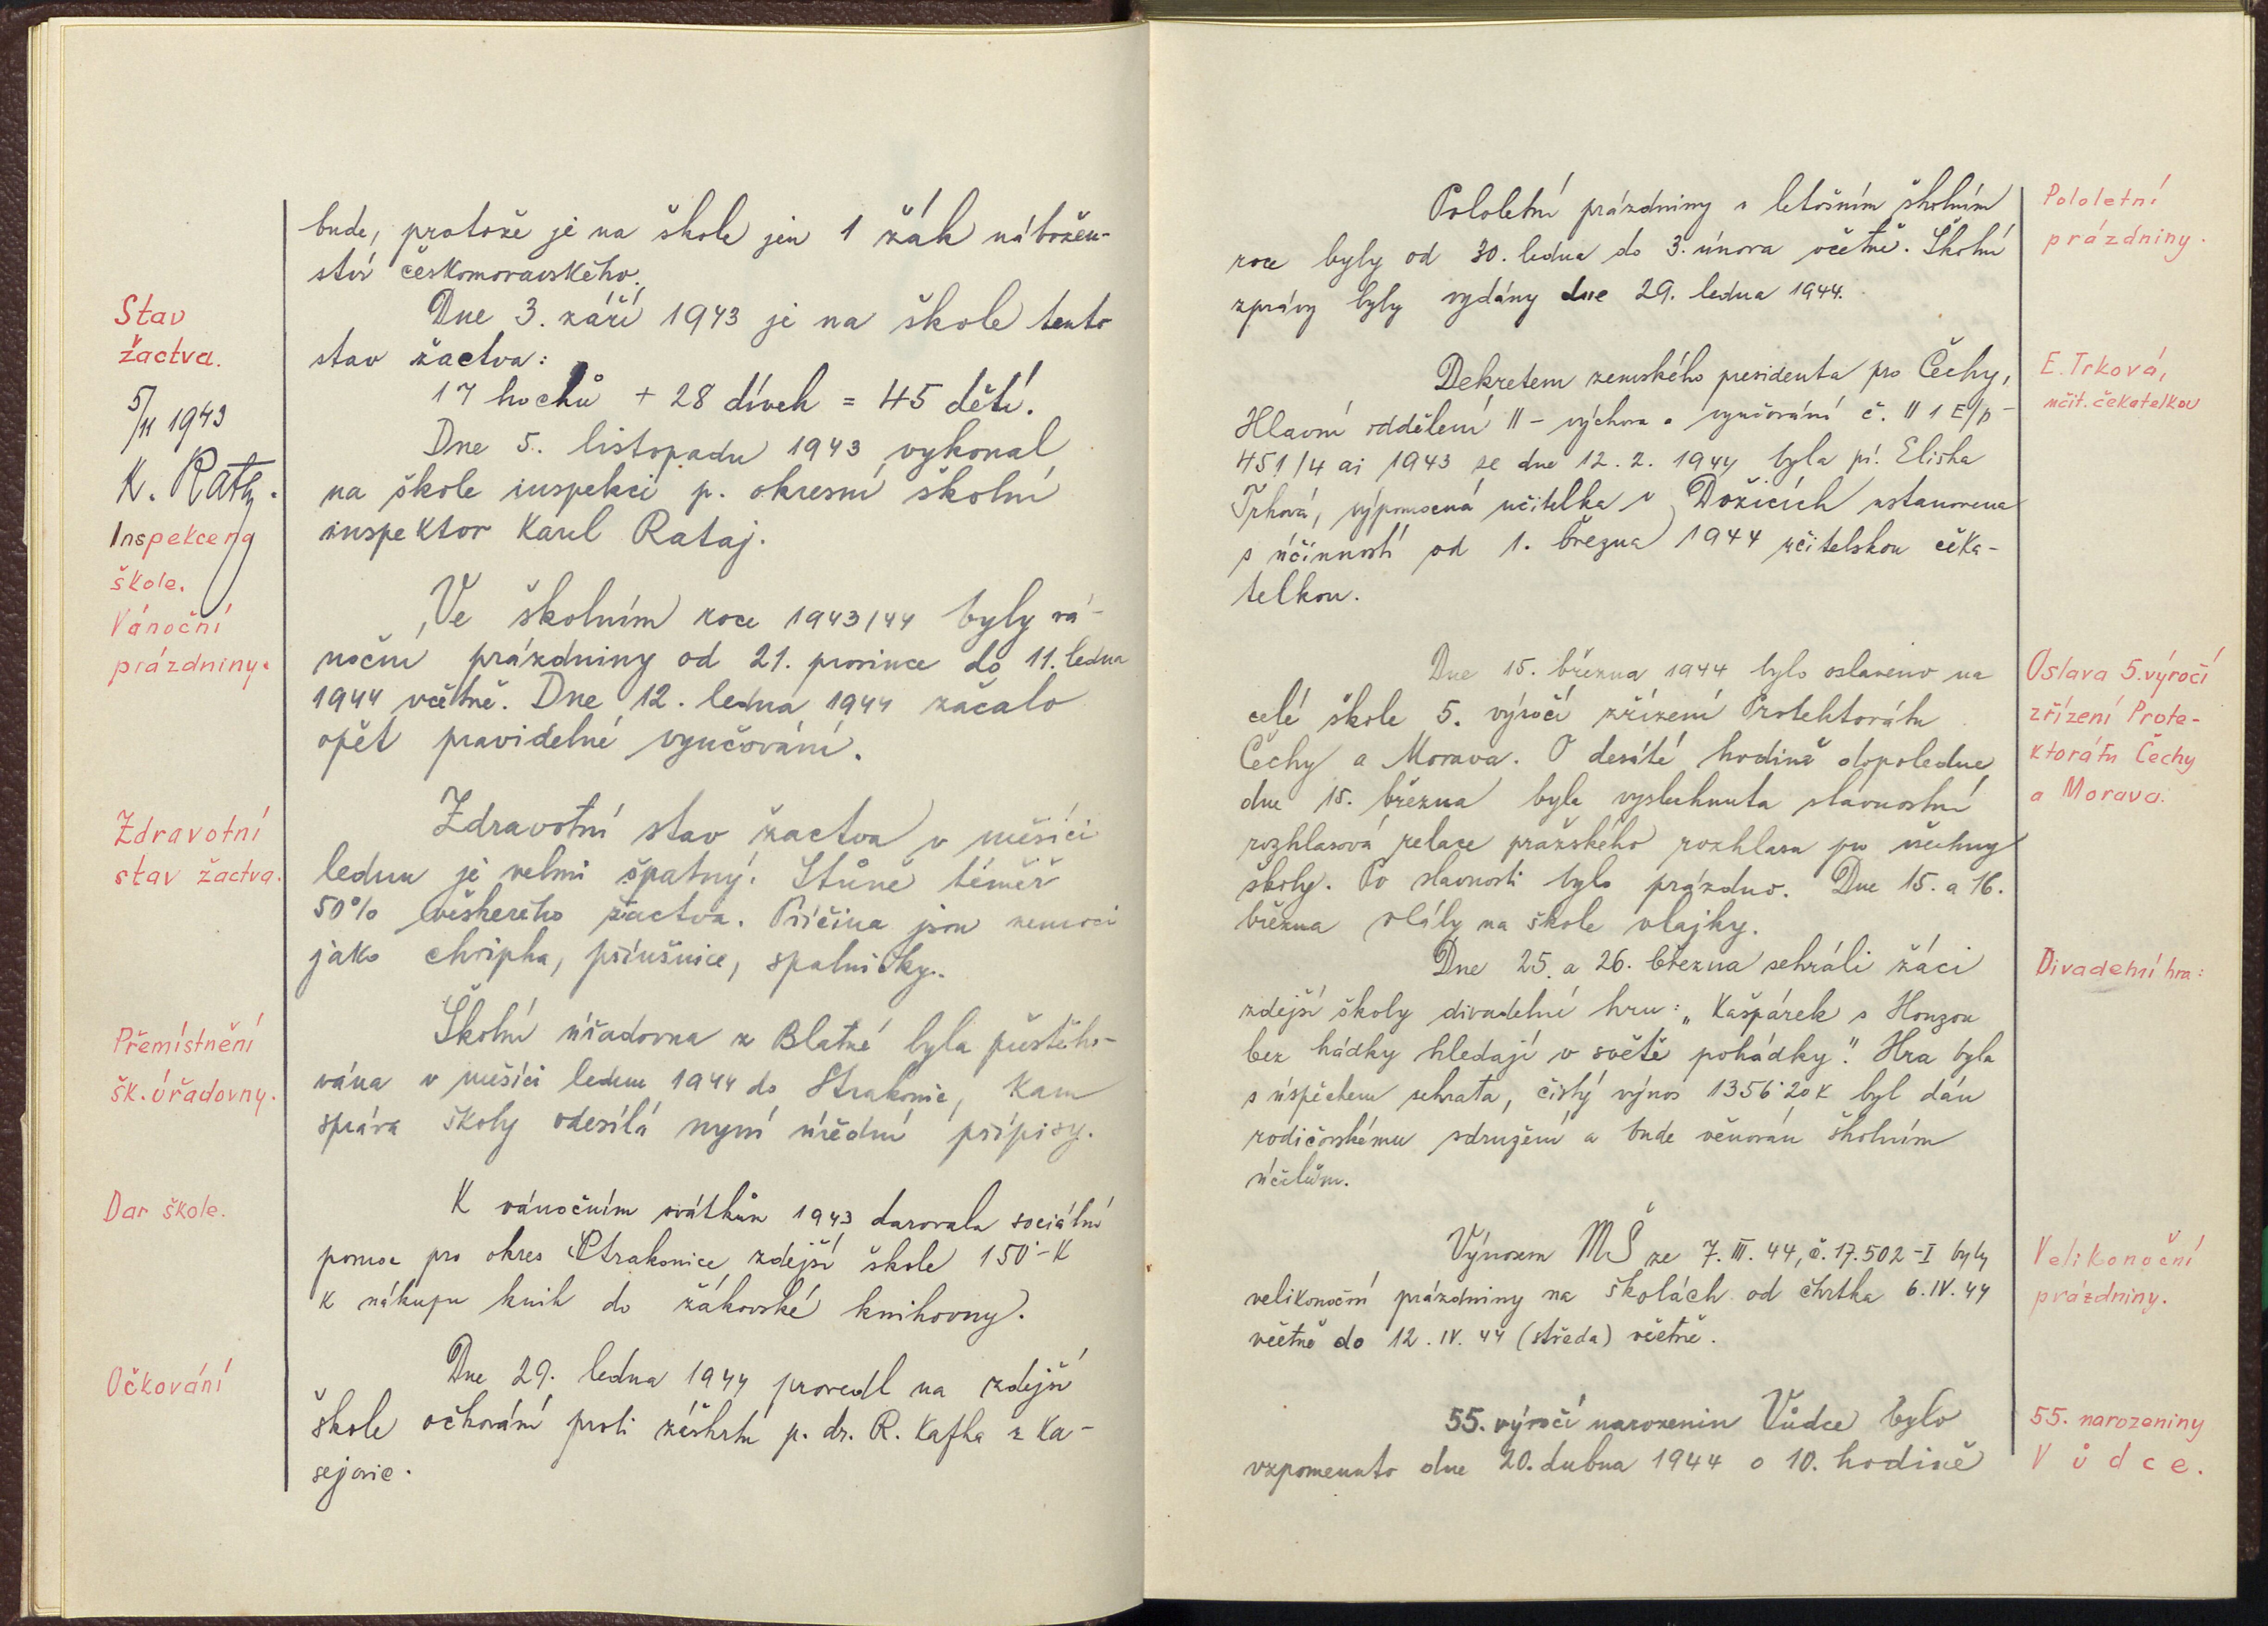 bude, protože je na škole jen 1 žák nábožen-
ství českomoravského.
Stav
žactva.
Dne 3. září 1943 je na škole tento
stav žactva:
17 hochů + 28 dívek = 45 dětí.
5/11 1943
K. Rataj.
Inspekce na
škole.
Dne 5. listopadu 1943 vykonal
na škole inspekci p. okresní školní
inspektor Karel Rataj.
Vánoční
prázdniny.
Ve školním roce 1943/44 byly vá-
noční prázdniny od 21. prosince do 11. ledna
1944 včetně. Dne 12. ledna 1944 začalo
opět pravidelné vyučování.
Zdravotní
stav žactva.
Zdravotní stav žactva v měsíci
lednu je velmi špatný. Stůně téměř
50% veškerého žactva. Příčina jsou nemoci
jako chřipka, příušnice, spalničky.
Přemístnění
šk. úřadovny.
Školní úřadovna z Blatné byla přestěho-
vána v měsíci lednu 1944 do Strakonic, kam
správa školy odesílá nyní úřední přípisy.
Dar škole.
K vánočním svátkům 1943 darovala sociální
pomoc pro okres Strakonice zdejší škole 150·-K
k nákupu knih do žákovské knihovny.
Očkování
Dne 29. ledna 1944 provedl na zdejší
škole očkování proti záškrtu p. dr. R. Kafka z Ka-
sejovic.
Pololetní prázdniny v letošním školním
roce byly od 30. ledna do 3. února včetně. Školní
zprávy byly vydány dne 29. ledna 1944.
Pololetní
prázdniny.
Dekretem zemského presidenta pro Čechy,
Hlavní oddělení II - výchova a vyučování č. II 1 E/p-
451/4 ai 1943 ze dne 12. 2. 1944 byla pí. Eliška
Trková, výpomocná učitelka v Dožicích ustanovena
s účinností od 1. března 1944 učitelskou čeka-
telkou.
E. Trková,
učit. čekatelkou
Dne 15. března 1944 bylo oslaveno na
celé škole 5. výročí zřízení Protektorátu
Čechy a Morava. O desáté hodině dopoledne
dne 15. března byla vyslechnuta slavnostní
rozhlasová relace pražského rozhlasu pro všechny
školy. Po slavnosti bylo prázdno. Dne 15. a 16.
března vlály na škole vlajky.
Oslava 5. výročí
zřízení Prote-
ktorátu Čechy
a Morava.
Dne 25. a 26. března sehráli žáci
zdejší školy divadelní hru: „Kašpárek s Honzou
bez hádky hledají v světě pohádky." Hra byla
s úspěchem sehrata, čistý výnos 1356·20 K byl dán
rodičovskému sdružení a bude věnován školním
účelům.
Divadelní hra:
Výnosem MŠ ze 7. III. 44, č. 17.502-I byly
velikonoční prázdniny na školách od čtvrtka 6. IV. 44
včetně do 12. IV. 44 (středa) včetně.
Velikonoční
prázdniny.
55. výročí narozenin Vůdce bylo
vzpomenuto dne 20. dubna 1944 o 10. hodině
55. narozeniny
Vůdce.